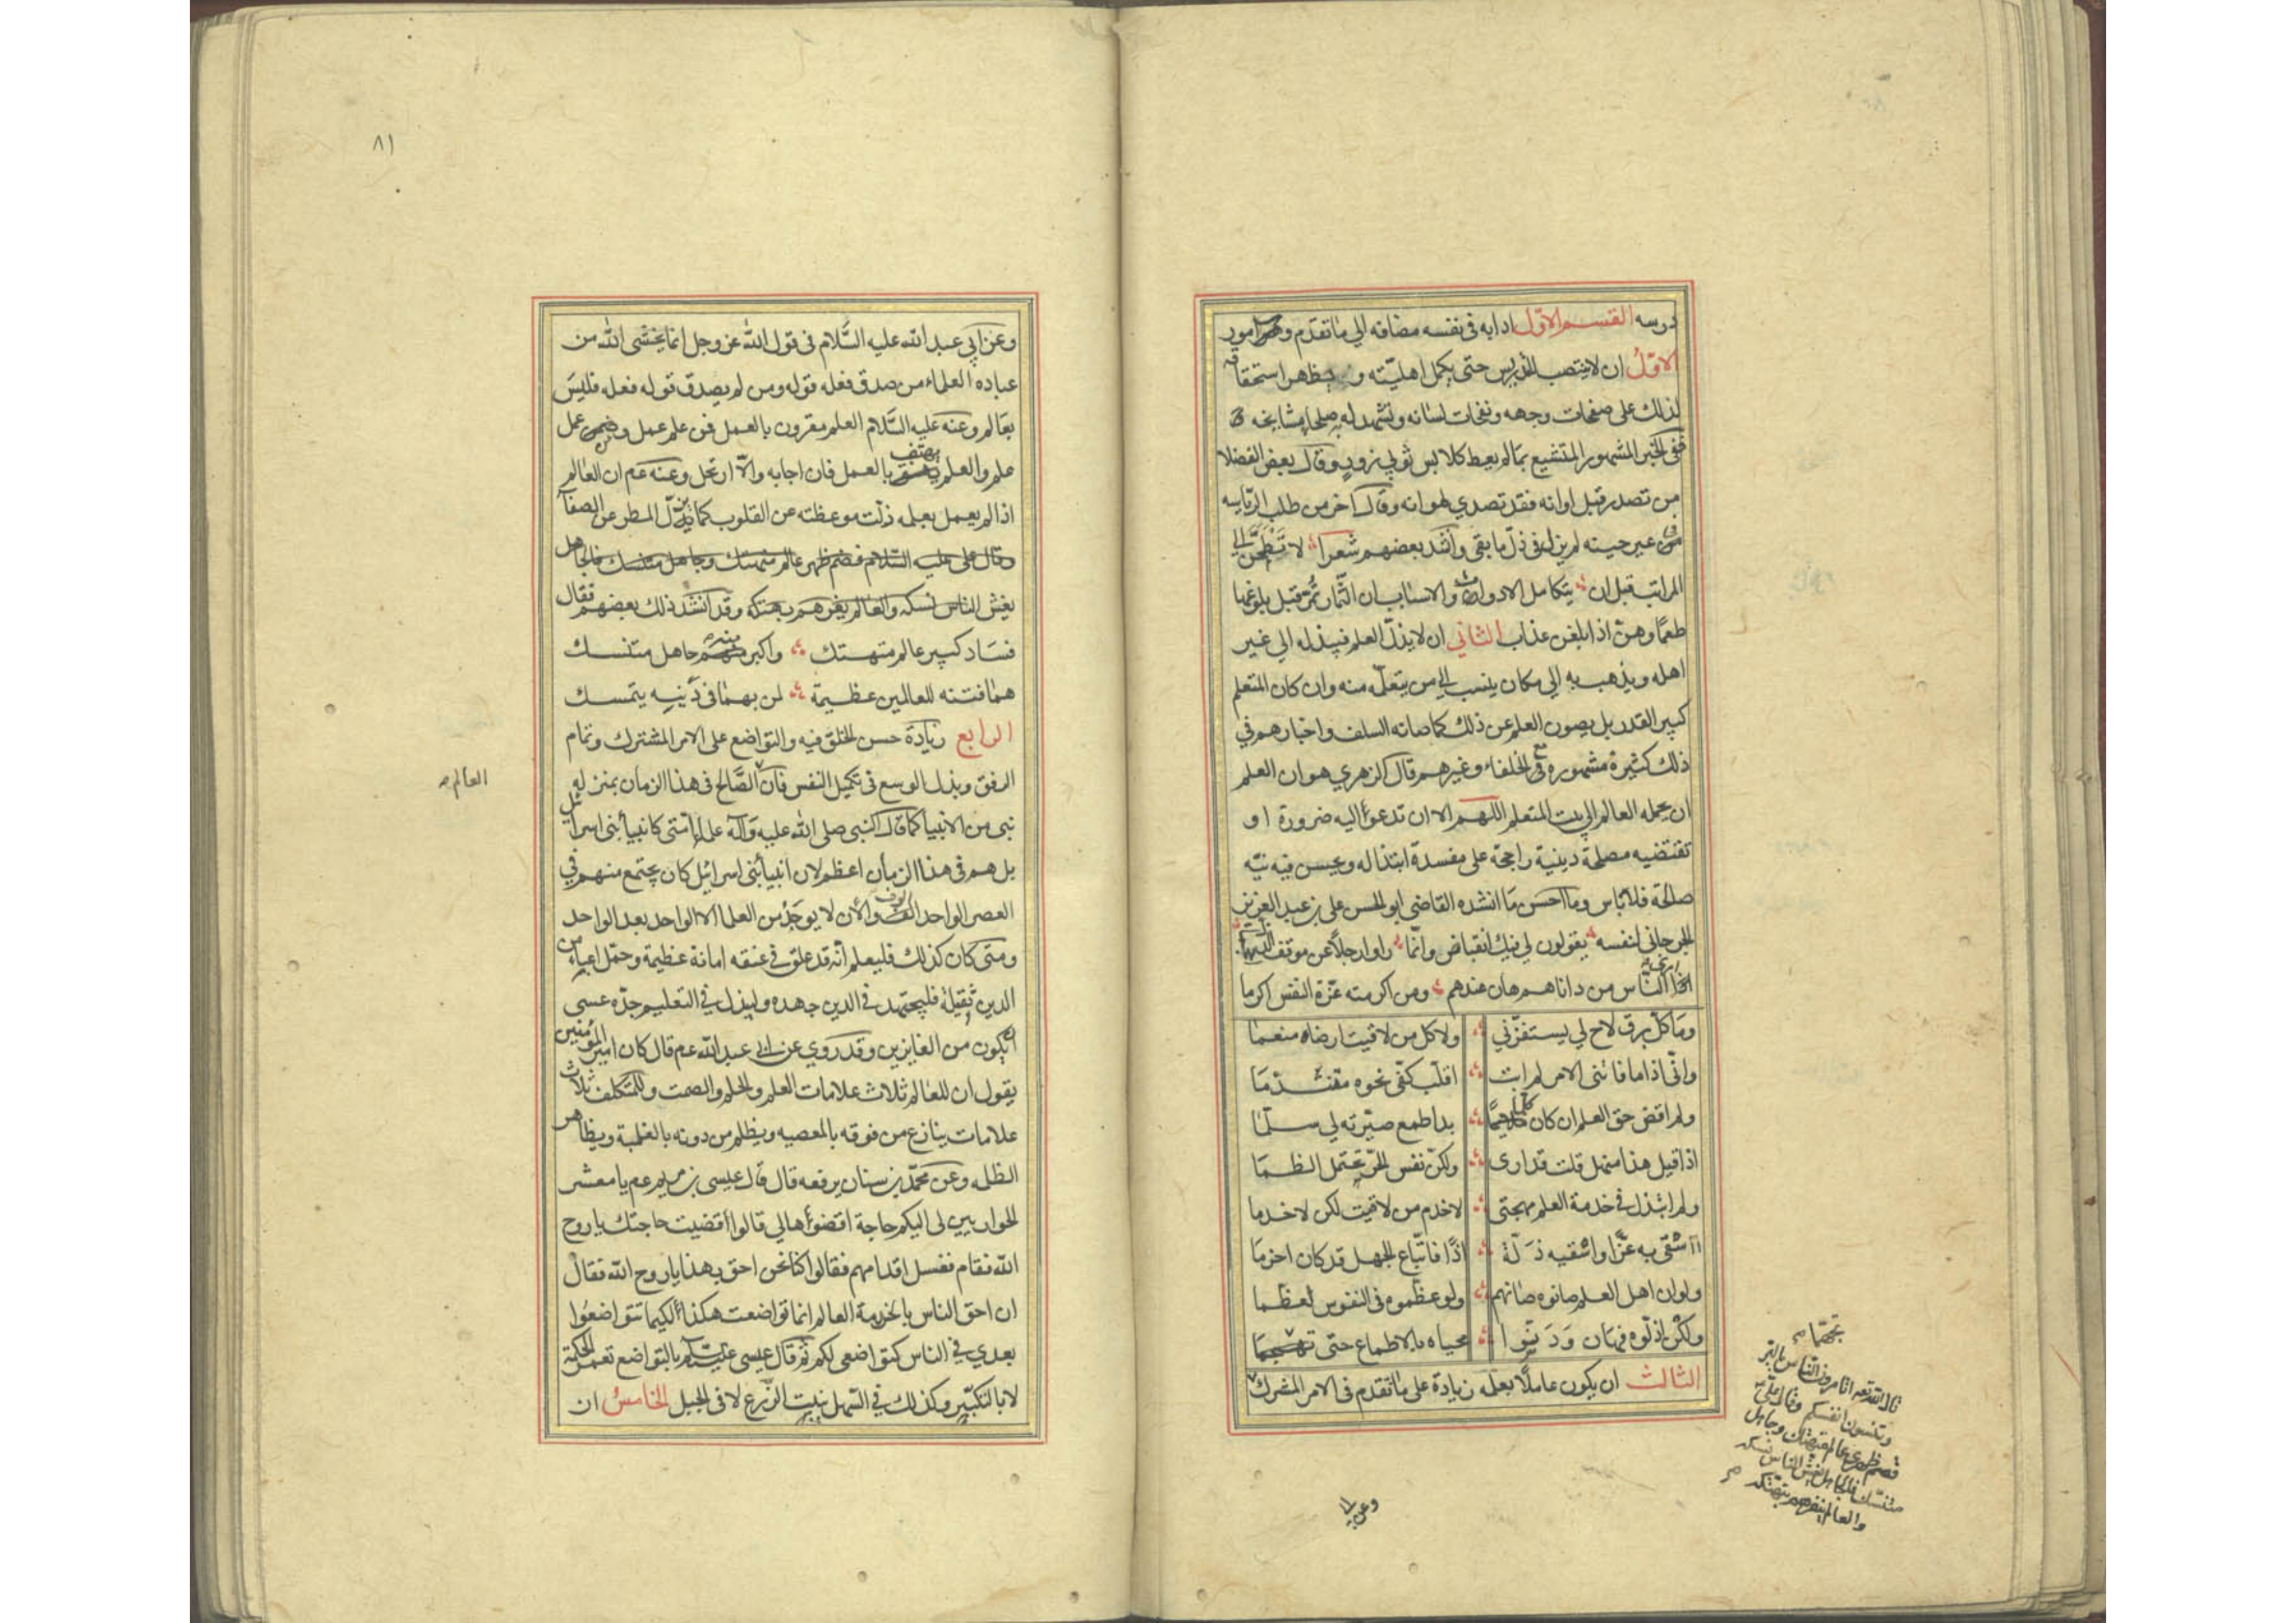 درسه القسم الاول ادابه فى نفسه مضافه الي ما تقدم وهي امور
الاوّل ان لا ينتصب للتدريس حتى يكمل اهليّته و يظهر استحقاقه
لذلك على صفحات وجهه ونفحات لسانه وتشهد له به صلحاء مشايخه
ففى الخبر المشهور المتشبع بما لم يعط كلابس ثوبي زور وقال بعض الفضلا
من تصدر قبل اوانه فقد تصدي لهوانه وقال اخر من طلب الرياسه
فى غير حينه لم يزل فى ذلّ ما بقى وانشد بعضهم شعرا لا تطمحن الى
المراتب قبل ان يتكامل الادوات والاسباب ان الثمار تمرّ قبل بلوغها
طعمًا وهنّ اذا بلغن عذاب الثاني ان لا يذلّ العلم فيبذله الي غير
اهله ويذهب به الي مكان ينسب الي من يتعلّمه منه وان كان المتعلم
كبير القدر بل يصون العلم عن ذلك كما صانه السلف واخبارهم في
ذلك كثيرة مشهورة مع الخلفاء وغيرهم قال الزهري هوان العلم
ان يحمله العالم الي بيت المتعلم اللهم الا ان تدعو اليه ضرورة او
تقتضيه مصلحة دينية راجحة على مفسدة ابتذاله ويحسن فيه نيّه
صالحة فلا باس وما احسن ما انشده القاضى ابو الحسن على بن عبد العزيز
الجرجانى لنفسه يقولون لي فيك انقباض وانّما راوا رجلًا عن موقف الذل
ارى الناس من داناهم هان عندهم ومن اكرمته عزّة النفس اكرما
وما كلّ برق لاح لي يستفزّني ولا كل من لاقيت ارضاه منعما
وانّى اذا ما فاتنى الامر لم ابت اقلّب كفّى نحوه متندّما
ولم اقض حق العلم ان كان كلّما بدا طمع صيّرته لي سلّما
اذا قيل هذا منهل قلت قد ارى ولكنّ نفس الحرّ تحتمل الظما
ولم ابتذل في خدمة العلم مهجتى لاخدم من لاقيت لكن لاخدما
أاشقى به عزًّا واسقيه ذلّة اذًا فاتّباع الجهل قد كان احزما
ولو ان اهل العلم صانوه صانهم ولو عظموه فى النفوس لعظّما
ولكن اذلّوه فهان ودنّسوا محياه بالاطماع حتى
الثالث ان يكون عاملًا بعلمه زيادة على ما تقدم فى الامر المشترك
تجهّما
قال الله تعم اتامرون الناس بالبر
وتنسون انفسكم وقال على
قصم ظهري عالم متهتك وجاهل
متنسّك فالجاهل يغش الناس بنسكه
والعالم ينفرهم بتهتكه
وعن ابي
٨١
وعن ابي عبد الله عليه السّلام فى قول الله عز وجل انما يخشى الله من
عباده العلماء من صدق فعله قوله ومن لم يصدق قوله فعله فليس
بعالم وعنه عليه السّلام العلم مقرون بالعمل فمن علم عمل ومن عمل
علم والعلم يهتف بالعمل فان اجابه والّا ارتحل وعنه عم ان العالم
اذا لم يعمل بعلمه ذلّت موعظته عن القلوب كما يزلّ المطر عن الصفا
وقال على عليه السلام قصم ظهري عالم متهتك وجاهل متنسك فالجاهل
يغش الناس بنسكه والعالم يغرهم بهتكه وقد انشد ذلك بعضهم فقال
فساد كبير عالم متهتك واكبر منه جاهل متنسك
هما فتنه للعالمين عظيمة لمن بهما فى دينه يتمسك
الرابع زيادة حسن الخلق فيه والتواضع على الامر المشترك وتمام
الرفق وبذل الوسع فى تكميل النفس فان الصّالح فى هذا الزمان بمنزله
العالم
نبى من الانبيا كما قال النبى صلى الله عليه وآله علماء امتى كانبيا بنى اسرائيل
بل هم فى هذا الزمان اعظم لان انبيا بنى اسرائيل كان يجتمع منهم في
العصر الواحد الوف والآن لا يوجد من العلما الا الواحد بعد الواحد
ومتى كان كذلك فليعلم انّه قد علق في عنقه امانة عظيمة وحمّل اعباء من
الدين ثقيلة فليجتهد في الدين جهده وليبذل في التعليم جدّه عسى
ان يكون من الفايزين وقد روي عن ابي عبد الله عم قال كان امير المؤمنين
يقول ان للعالم ثلاث علامات العلم والحلم والصمت وللمتكلف ثلاث
علامات ينازع من فوقه بالمعصيه ويظلم من دونه بالغلبة ويظاهر
الظلمه وعن محمّد بن سنان يرفعه قال قال عيسى بن مريم عم يا معشر
الحواريين لى اليكم حاجة اقضوها لي قالوا اقضيت حاجتك يا روح
الله فقام فغسل اقدامهم فقالوا كنا نحن احق بهذا يا روح الله فقال
ان احق الناس بالخدمة العالم انما تواضعت هكذا لكيما تتواضعوا
بعدي في الناس كتواضعى لكم ثم قال عيسى عليه السلام بالتواضع تعمر الحكمة
لا بالتكبّر وكذلك في السّهل ينبت الزّرع لا فى الجبل الخامس ان